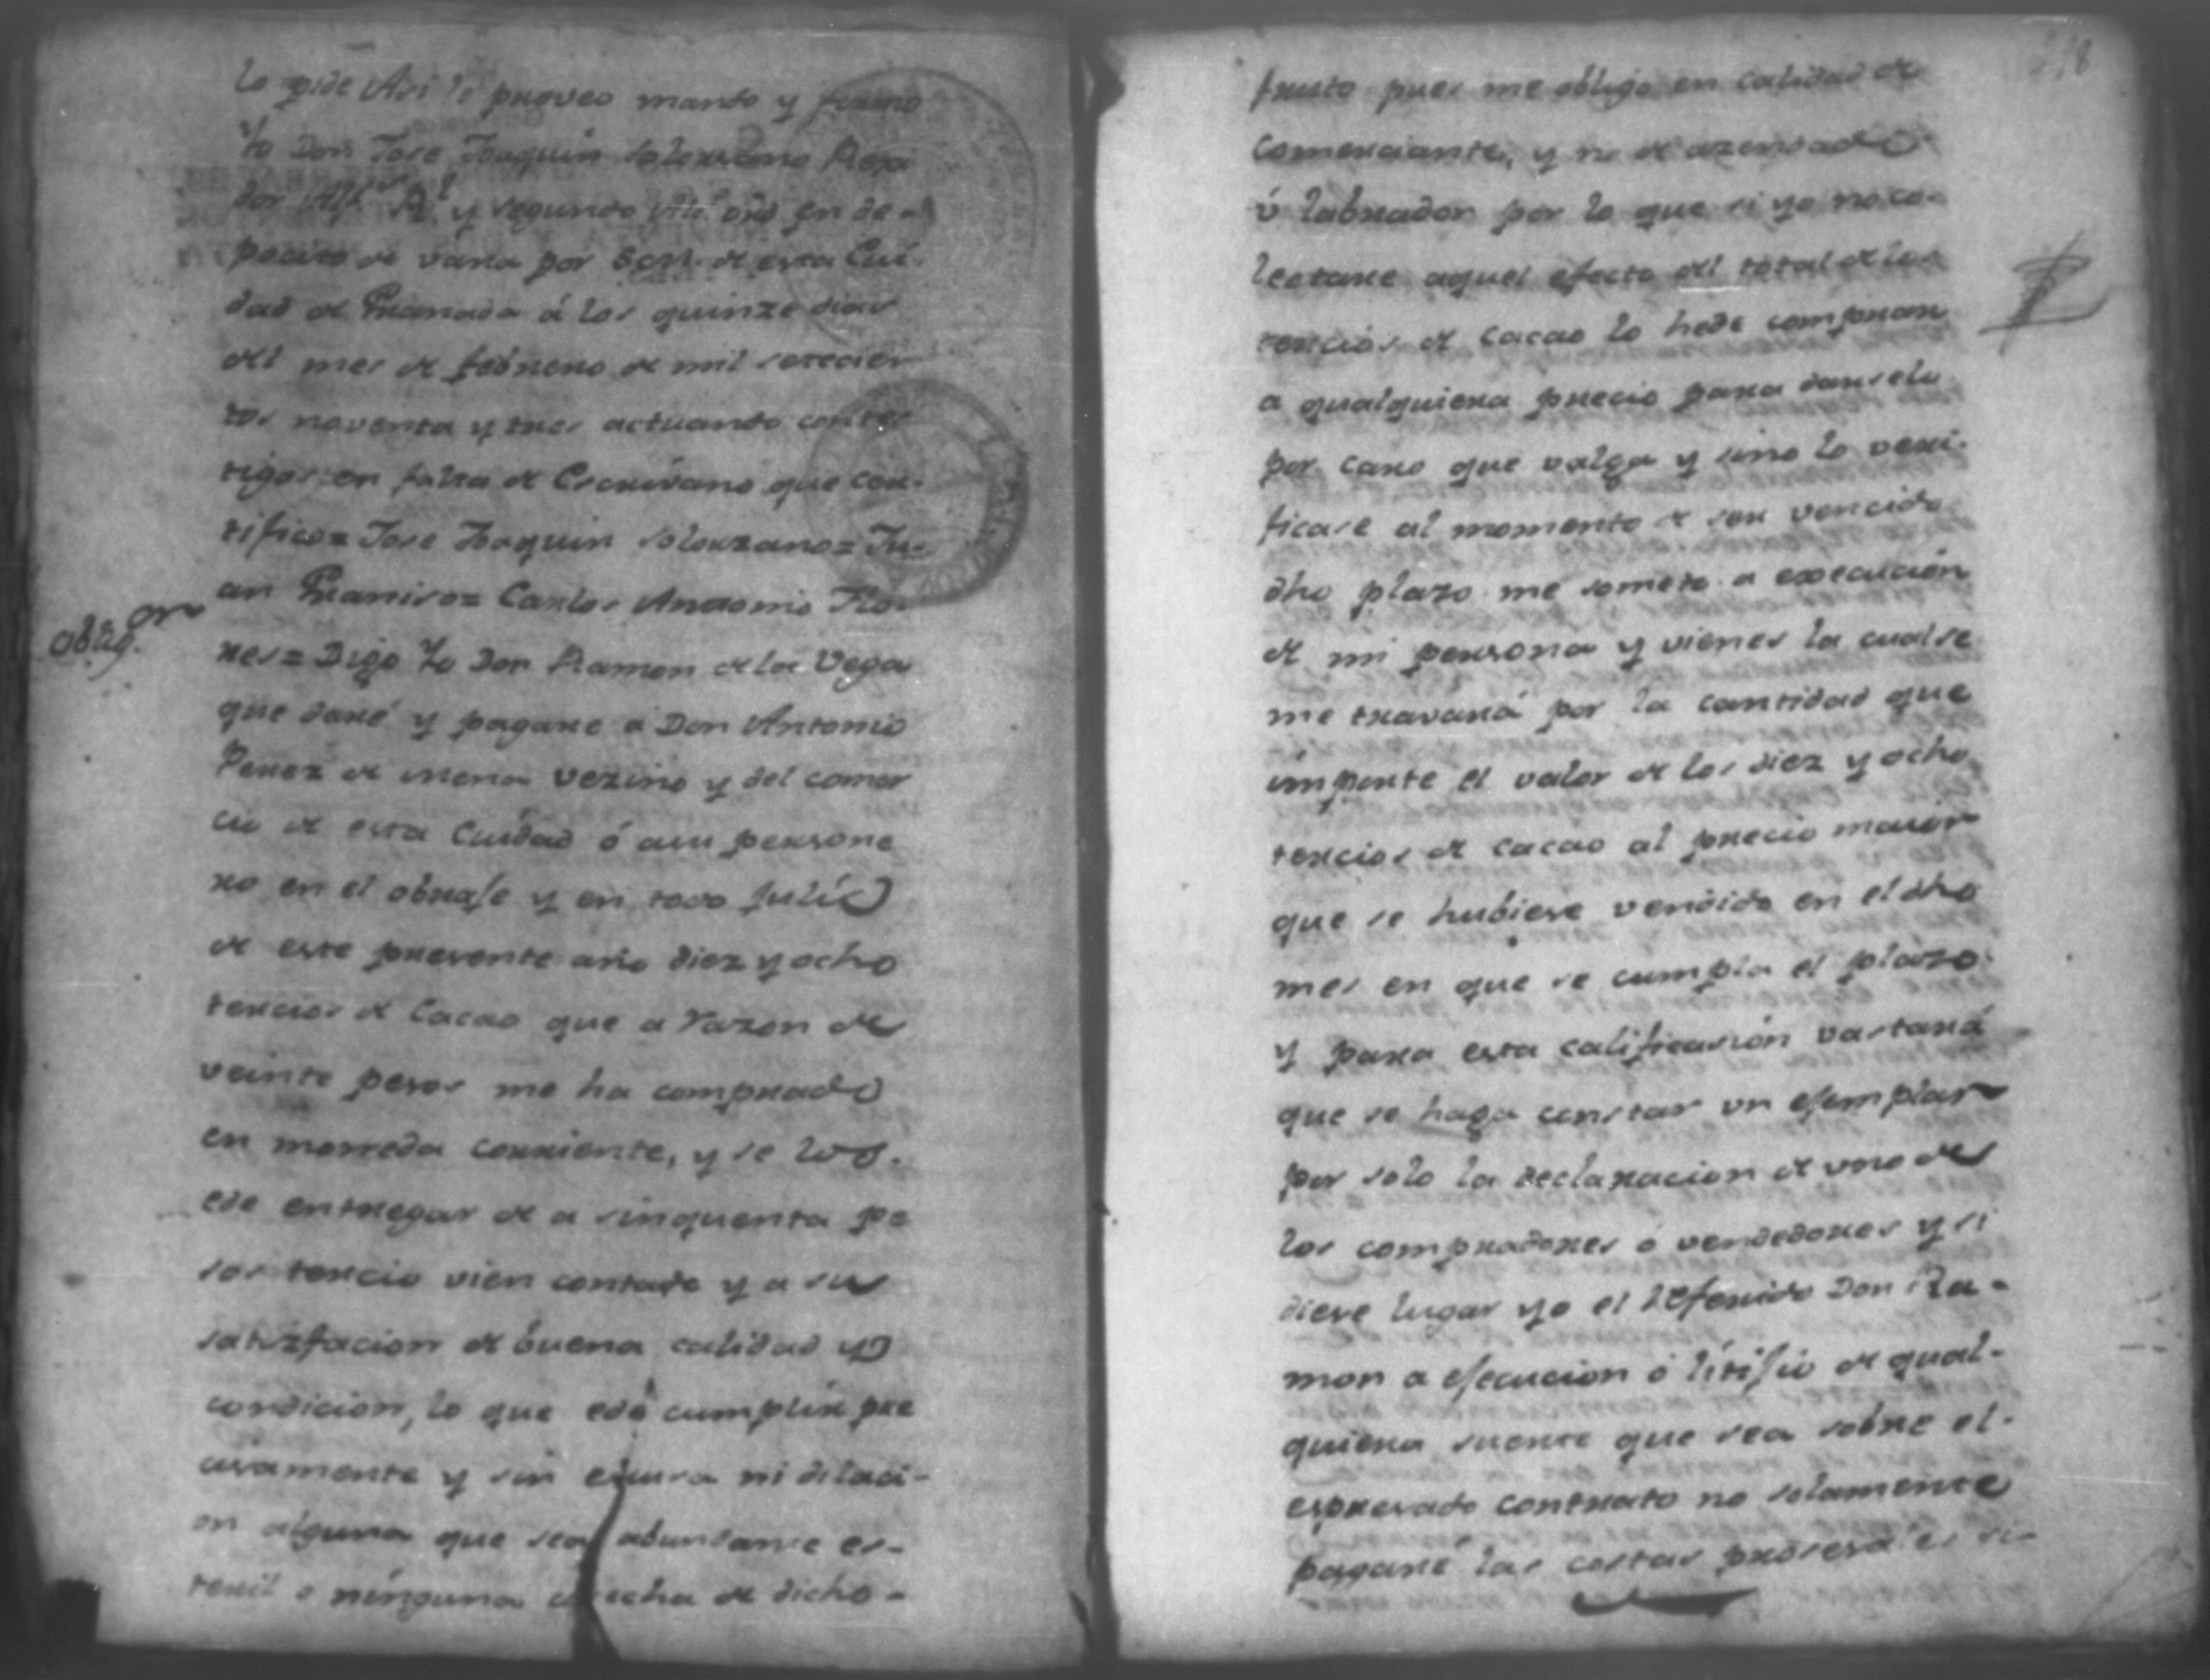 lo pide Asi lo proveo mando y firmo
Yo Don Jose Joaquin Solorzano Regi
dor Alf.z R.l y segundo Alc.e ord.o en de-
pocito de vara por S.M. de esta Ciu-
dad de Granada á los quinze dias
del mes de febrero de mil setecien
tos noventa y tres actuando con tes
tigos en falta de Escrivano que cer-
tifico= Jose Joaquin Solorzano= Ju-
an Ramiro= Carlos Antonio Flo-
oblig.on
res= Digo Yo Don Ramon de la Vega
que daré y pagare á Don Antonio
Perez de Mena vezino y del comer
cio de esta Ciudad ó a su persone
ro en el obraje y en todo Julio
de este presente año diez y ocho
tercios de Cacao que a razon de
veinte pesos me ha comprado
en moneda corriente, y se los
ede entregar de a sinquenta pe
sos tercio vien contado y a su
satizfacion de buena calidad y
condicion, lo que edé cumplir pre
cisamente y sin escusa ni dilaci-
on alguna que sea abundante es-
teril o ninguna cosecha de dicho-
218
fruto pues me obligo en calidad de
Comerciante, y no de azendado
ú labrador por lo que si yo no co-
lectare aquel efecto del total de los
tercios de Cacao lo hede comprar
a qualquiera precio para darselo
por caro que valga y sino lo veri-
ficare al momento de ser vencido
dho plazo me someto a execución
de mi persona y vienes la cual se
me travará por la cantidad que
importe el valor de los diez y ocho
tercios de cacao al precio maior
que se hubiese vendido en el dho
mes en que se cumpla el plazo
y para esta calificasión vastará
que se haga constar un ejemplar
por solo la declaracion de uno de
los compradores o vendedores y si
diese lugar yo el referido Don Ra-
mon a ejecucion ó litijio de qual-
quiera suerte que sea sobre el-
espresado contrato no solamente
pagaré las costas prosesales si-